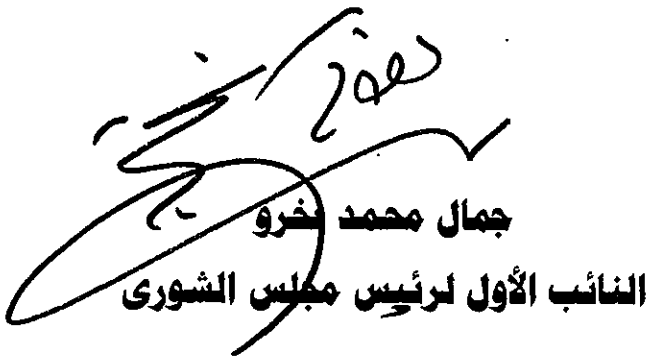 جمال محمد فخرو
النائب الأول لرئيس مجلس الشورى